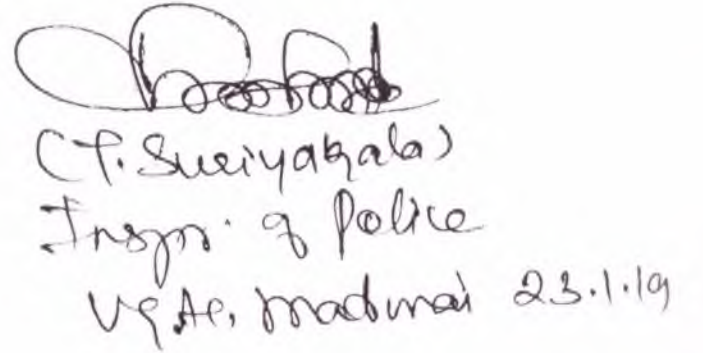 (T. Suriyakala)
Inspr. of Police
V&AC, Madurai 23.1.19